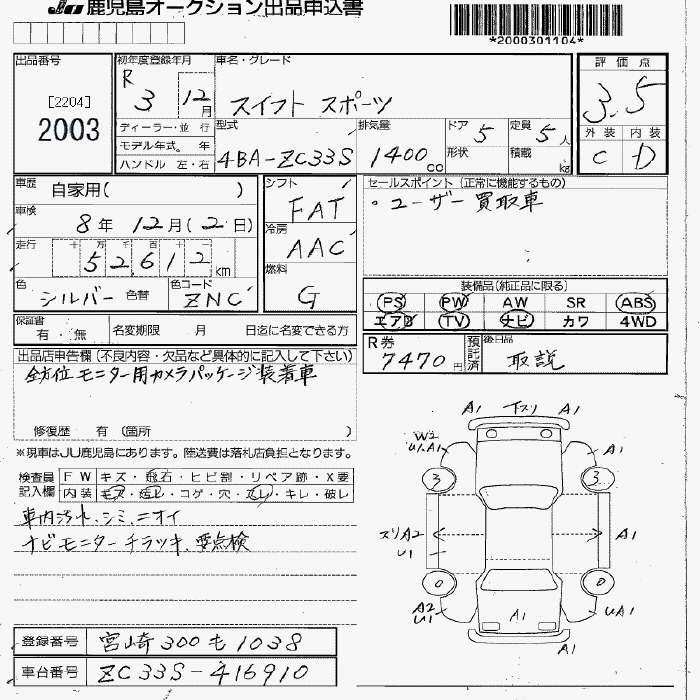 JU 鹿児島オークション出品申込書
*2000301104*
出品番号
[2204]
2003
初年度登録年月
R 3 12月
車名・グレード
スイフト スポーツ
評価点
3.5
外装 内装
C D
ディーラー・並 行
モデル年式. 年
ハンドル 左・右
型式
4BA-ZC33S
排気量
1400cc
ドア 5
形状
定員 5人
積載 kg
車歴 自家用( )
車検 8年 12月(2日)
走行 十 万 千 百 十
52,612km
色 シルバー 色替
色コード ZNC
シフト FAT
冷房 AAC
燃料 G
セールスポイント(正常に機能するもの)
・ユーザー買取車
装備品(純正品に限る)
PS PW AW SR ABS
エアB TV ナビ カワ 4WD
保証書 有・無
名変期限 月 日迄に名変できる方
R券 7470円
預託済
後日品 取説
出品店申告欄(不良内容・欠品など具体的に記入して下さい)
全方位モニター用カメラパッケージ装着車
修復歴 有 (箇所 )
※現車はJU鹿児島にあります。陸送費は落札店負担となります。
検査員記入欄
FW キズ・飛石・ヒビ割・リペア跡・X要
内装 キズ・汚レ・コゲ・穴・スレ・キレ・破レ
車内汚れ、シミ、ニオイ
ナビモニターチラツキ、要点検
A1 下スリ A1
W2
U1.A1
A1
3 3
スリA2
U1
A1
0 0
A2
U1
A1
UA1
A1
登録番号 宮崎300も1038
車台番号 ZC33S-416910